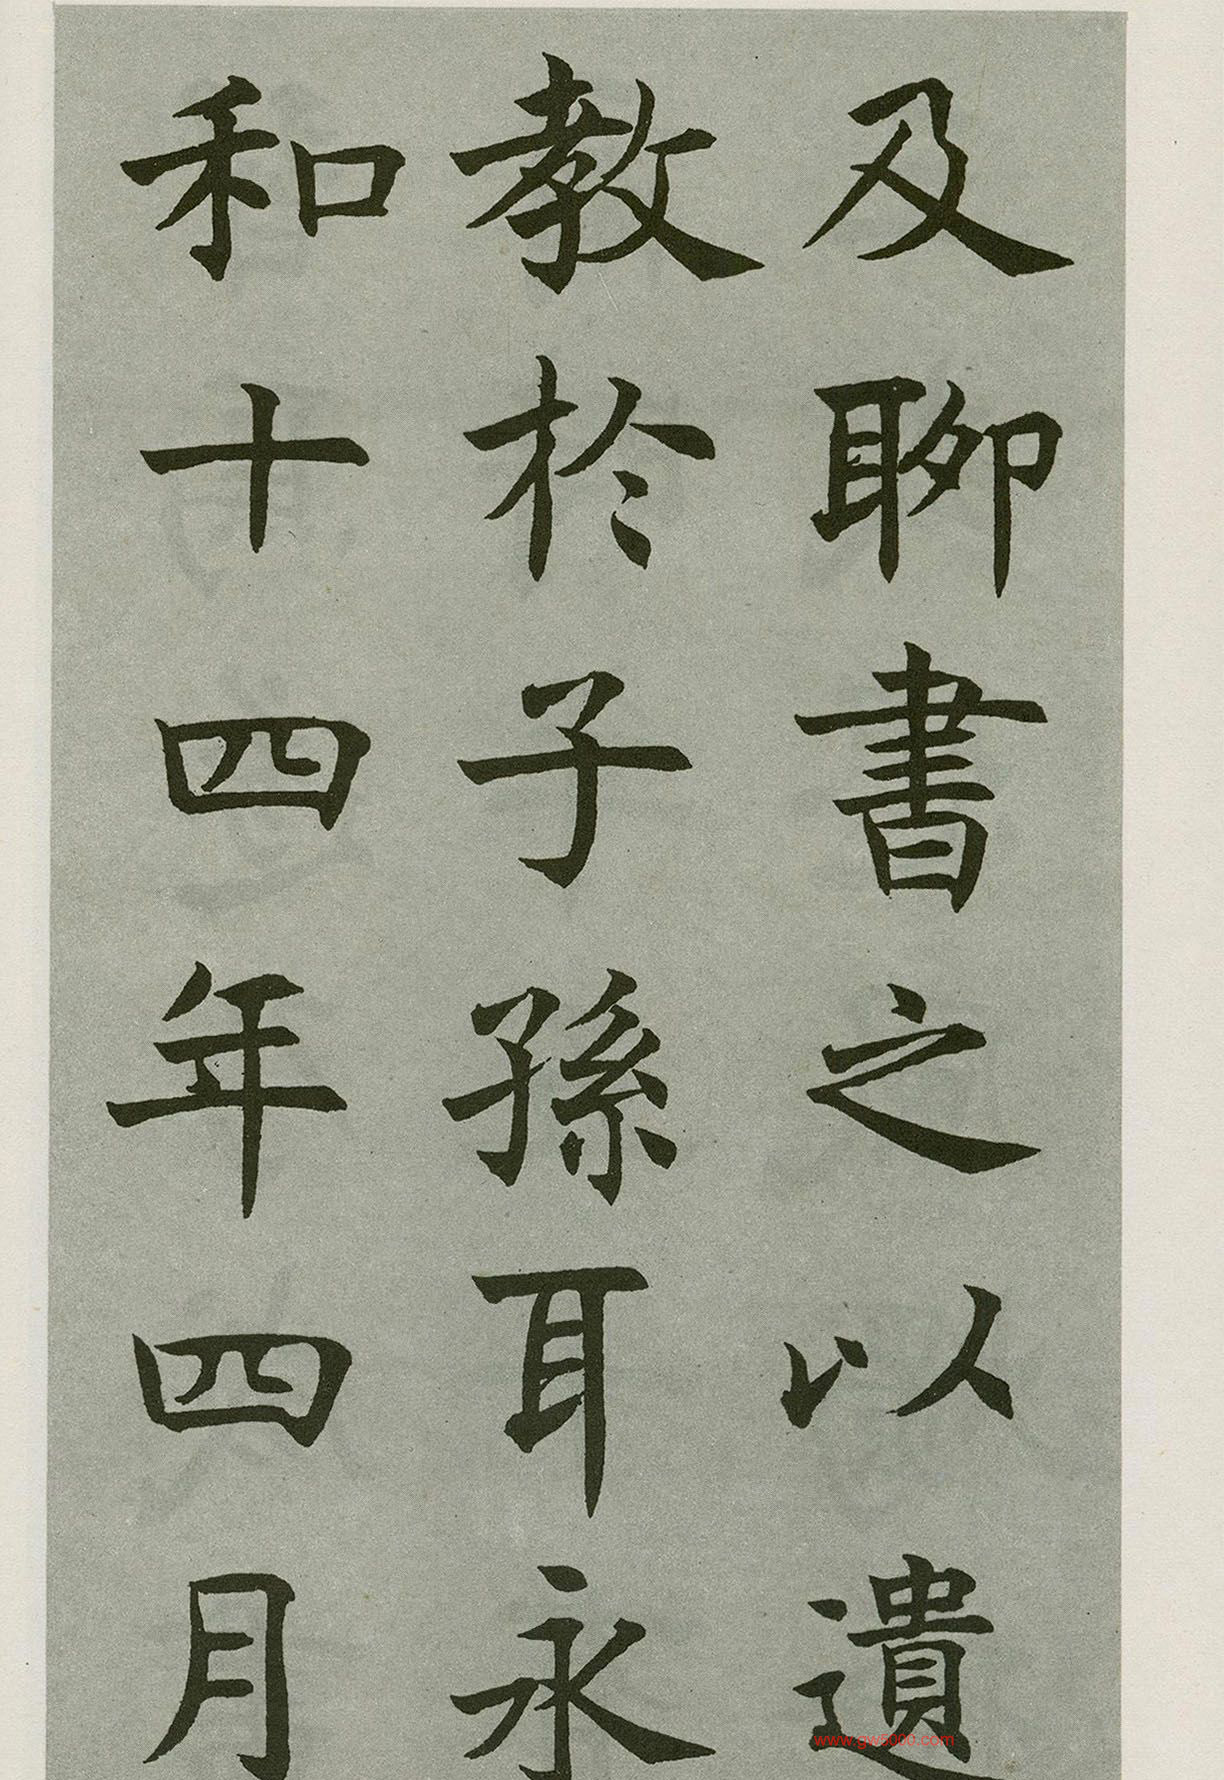 及聊書之以遺
教於子孫耳永
和十四年四月
www.gw5000.com